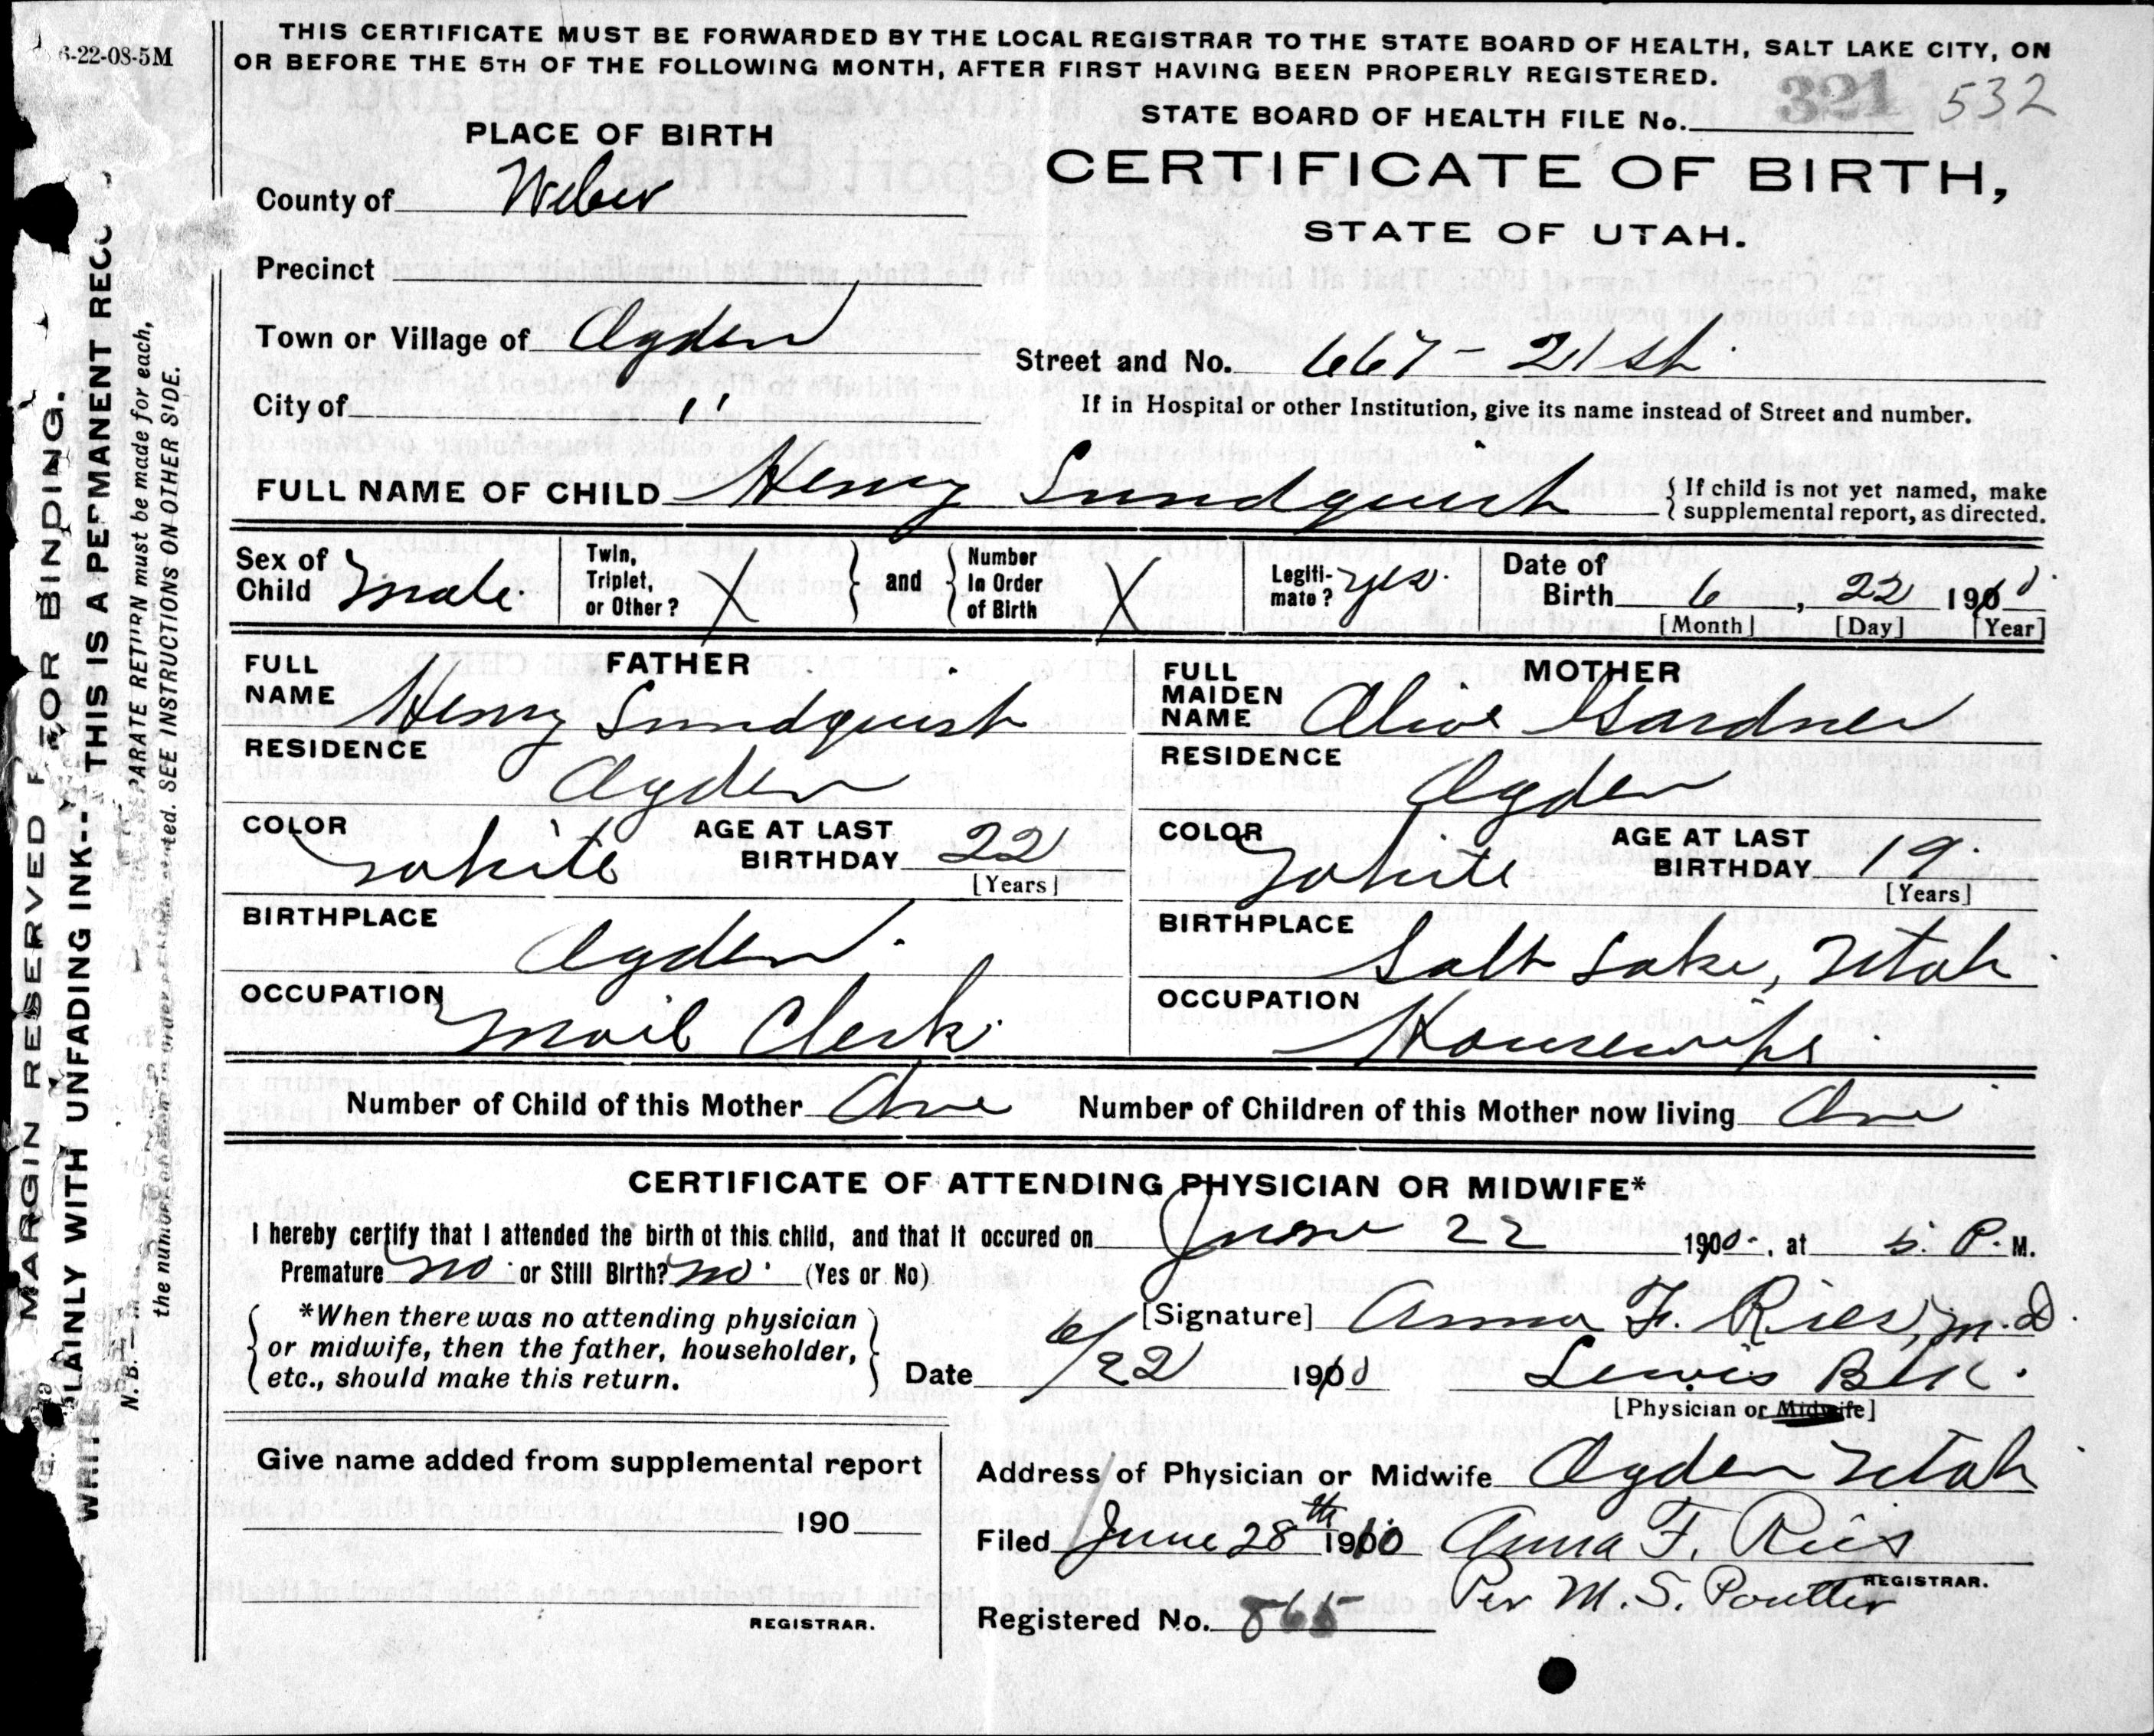 6-22-08-5M
THIS CERTIFICATE MUST BE FORWARDED BY THE LOCAL REGISTRAR TO THE STATE BOARD OF HEALTH, SALT LAKE CITY, ON
OR BEFORE THE 5TH OF THE FOLLOWING MONTH, AFTER FIRST HAVING BEEN PROPERLY REGISTERED.
321 532
STATE BOARD OF HEALTH FILE No.
PLACE OF BIRTH
CERTIFICATE OF BIRTH,
STATE OF UTAH.
County of Weber
Precinct
Town or Village of Ogden
Street and No. 667 - 21 st.
City of "
If in Hospital or other Institution, give its name instead of Street and number.
FULL NAME OF CHILD Henry Sundquist
{ If child is not yet named, make
{ supplemental report, as directed.
Sex of Child Male.
Twin, Triplet, or Other? X
} and {
Number In Order of Birth X
Legiti-mate? yes.
Date of Birth 6, 22 1910
[Month] [Day] [Year]
FATHER
FULL NAME Henry Sundquist
RESIDENCE Ogden
COLOR White
AGE AT LAST BIRTHDAY 22
[Years]
BIRTHPLACE Ogden.
OCCUPATION Mail Clerk.
MOTHER
FULL MAIDEN NAME Olive Gardner
RESIDENCE Ogden
COLOR White
AGE AT LAST BIRTHDAY 19.
[Years]
BIRTHPLACE Salt Lake, Utah.
OCCUPATION Housewife.
Number of Child of this Mother One
Number of Children of this Mother now living One
CERTIFICATE OF ATTENDING PHYSICIAN OR MIDWIFE*
I hereby certify that I attended the birth of this child, and that it occured on June 22 190 , at P. M.
Premature no. or Still Birth? no. (Yes or No)
*When there was no attending physician
or midwife, then the father, householder,
etc., should make this return.
[Signature] Anna F. Ries, M.D.
Date 6/22 1910
Lewis Blk.
[Physician or Midwife]
Address of Physician or Midwife Ogden Utah.
Give name added from supplemental report
190
REGISTRAR.
Filed June 28th 1910 Anna F. Ries
REGISTRAR.
Per M. S. Poutter
Registered No. 865
MARGIN RESERVED FOR BINDING.
PLAINLY WITH UNFADING INK--THIS IS A PERMANENT REC
N. B.
PARATE RETURN must be made for each,
the number
SEE INSTRUCTIONS ON OTHER SIDE.